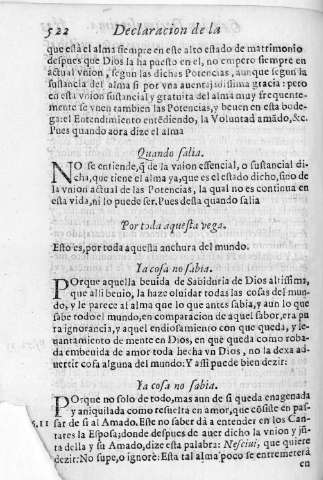 522 Declaracion de la
que està el alma siempre en este alto estado de matrimonio
despues que Dios la ha puesto en el, no empero siempre en
actual vnion, segun las dichas Potencias, aunque segun la
sustancia del alma si por vna auentajadissima gracia: pero
en esta vnion sustancial y gratuita del alma muy frequente-
mente se vnen tambien las Potencias, y beuen en esta bode-
ga: el Entendimiento entēdiendo, la Voluntad amādo, &c.
Pues quando aora dize el alma
Quando salia.
NO se entiende, q̃ de la vnion essencial, o sustancial di-
cha, que tiene el alma ya, que es el estado dicho, sino de
la vnion actual de las Potencias, la qual no es continua en
esta vida, ni lo puede ser. Pues desta quando salia
Por toda aquesta vega.
Esto es, por toda aquesta anchura del mundo.
Ya cosa no sabia.
POrque aquella beuida de Sabiduria de Dios altissima,
que alli beuio, la haze oluidar todas las cosas del mun-
do, y le parece al alma que lo que antes sabia, y aun lo que
sabe todo el mundo, en comparacion de aquel sabor, era pu
ra ignorancia, y aquel endiosamiento con que queda, y le-
uantamiento de mente en Dios, en que queda como roba-
da embeuida de amor toda hecha vn Dios, no la dexa ad-
uertir cosa alguna del mundo: Y assi puede bien dezir:
Ya cosa no sabia.
POrque no solo de todo, mas aun de si queda enagenada
y aniquilada como resuelta en amor, que cōsiste en pas-
sar de si al Amado. Este no saber dà a entender en los Can-
6.11 tares la Esposa; donde despues de auer dicho la vnion y jũ
ta della y su Amado, dize esta palabra: Nesciui, que quiere
dezir: No supe, o ignorè: Esta tal alma poco se entremeterà
en